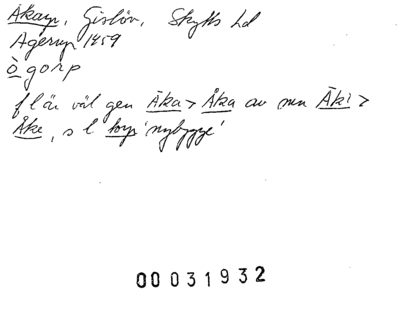 Åkarp, Gislöv, Skytts hd
Agerup 1459
ògorp
f l är väl gen Āka > Åka av mn Āki >
Åke, s l torp 'nybygge'
00031932